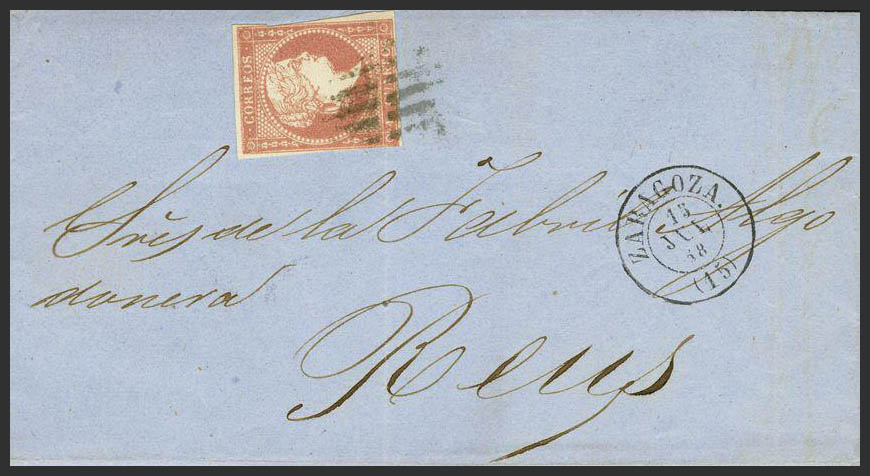 CORREOS
Sres de la Fabril Algo
donera
Reus
ZARAGOZA.
15
JUL
58
(15)